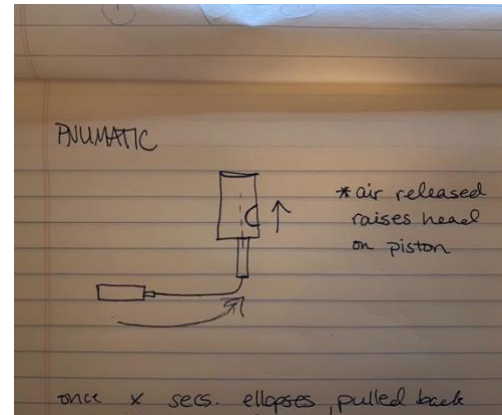 PNUMATIC
* air released
raises head
on piston
once x secs. ellapses, pulled back